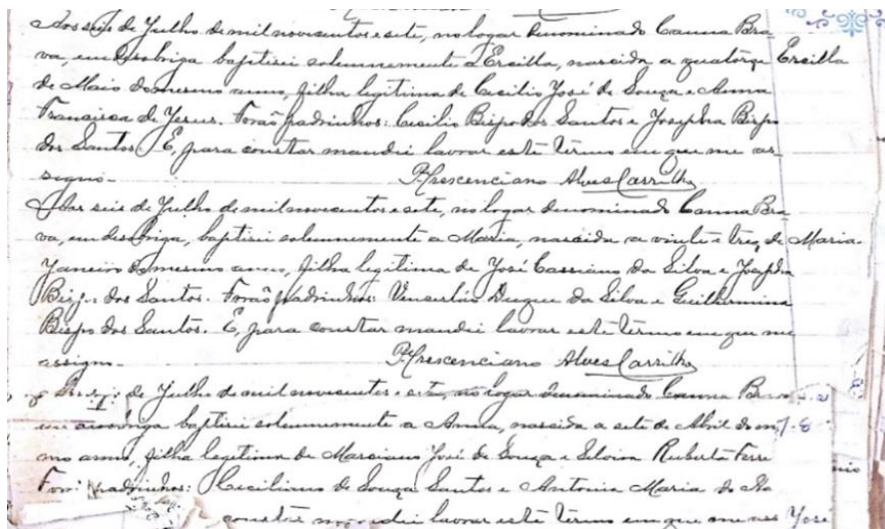 Aos seis de Julho de mil novecentos e sete, no logar denominado Canna Bra-
va, em desobriga baptisei solemnemente a Ercilla, nascida a quatorze Ercilla
de Maio do mesmo anno, filha legitima de Cecilio José de Souza e Anna
Francisca de Jesus. Forão padrinhos: Cecilio Bispo dos Santos e Josepha Bispo
dos Santos. E, para constar mandei lavrar este termo em que me as-
signo.- P. Crescenciano Alves Carrilho
Aos seis de Julho de mil novecentos e sete, no logar denominado Canna Bra-
va, em desobriga, baptisei solemnemente a Maria, nascida a vinte e trez de Maria.
Janeiro do mesmo anno, filha legitima de José Cassiano da Silva e Josepha
Bispo dos Santos. Forão padrinhos: Duque da Silva e Guilhermina
Bispo dos Santos. E, para constar mandei lavrar este termo em que me
assigno.- P. Crescenciano Alves Carrilho
de Julho de mil novecentos e sete, no logar denominado Canna
baptisei solemnemente a Anna, nascida a sete de Abril do
mo anno, filha legitima de Marciano José de Souza e
padrinhos: de Souza Santos e Antonia Maria do
constar mandei lavrar este termo em que me José